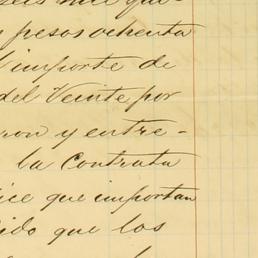 mil que-
pesos ochenta
importe de
del Veinte por
ron y entre-
la Contrata
ice que importan
ido que los